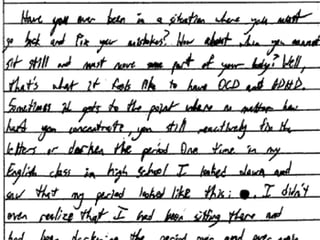 Have you ever been in a situation where you must
go back and fix your mistakes? How about when you cannot
sit still and must move some part of your body? Well,
that's what it feels like to have OCD and ADHD.
Sometimes it gets to the point where no matter how
hard you concentrate, you still reactively fix the
letters or darken the period. One time in my
English class in high school I looked down and
saw that my period looked like this: ●. I didn't
even realize that I had been sitting there and
had been darkening the period over and over again